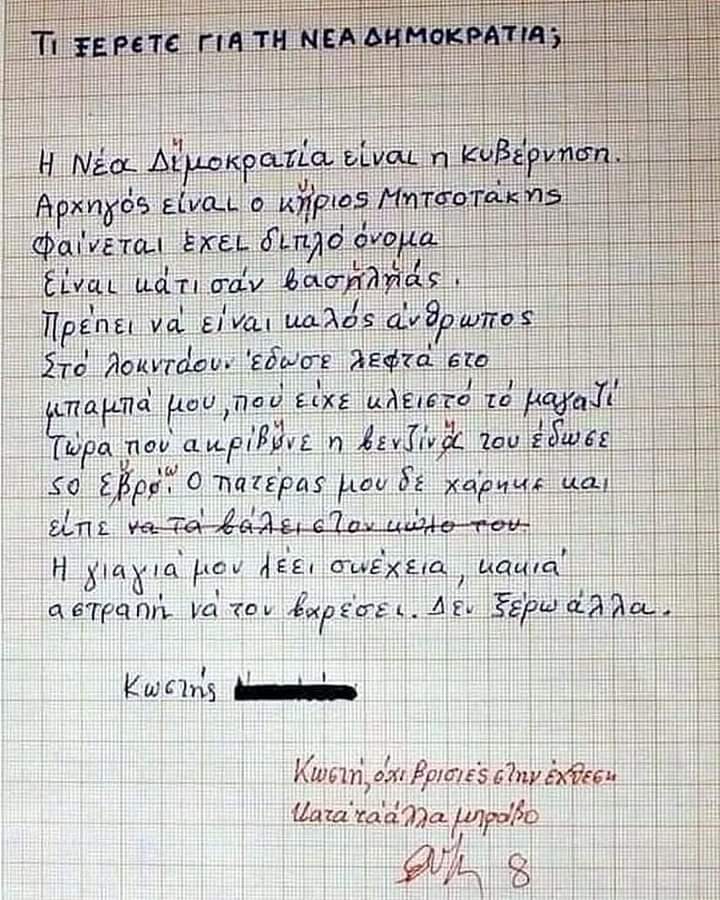 ΤΙ ΞΕΡΕΤΕ ΓΙΑ ΤΗ ΝΕΑ ΔΗΜΟΚΡΑΤΙΑ;
Η Νέα Δημοκρατία είναι η κυβέρνηση.
Αρχηγός είναι ο κύριος Μητσοτάκης
Φαίνεται έχει διπλό όνομα
Είναι κάτι σάν βασιλιάς.
Πρέπει νά είναι καλός άνθρωπος
Στό λοκντάουν έδωσε λεφτά στο
μπαμπά μου, πού είχε κλειστό τό μαγαζί
Τώρα πού ακρίβυνε η βενζίνη του έδωσε
50 εβρό. Ο πατέρας μου δε χάρηκε και
είπε να τά βάλει στον κώλο του
Η γιαγιά μου λέει συνέχεια, κακιά
αστραπή νά τον βαρέσει. Δεν ξέρω άλλα.
Κωστής
Κωστή, όχι βρισιές στην έκθεση
Κατά τα άλλα μπράβο
8